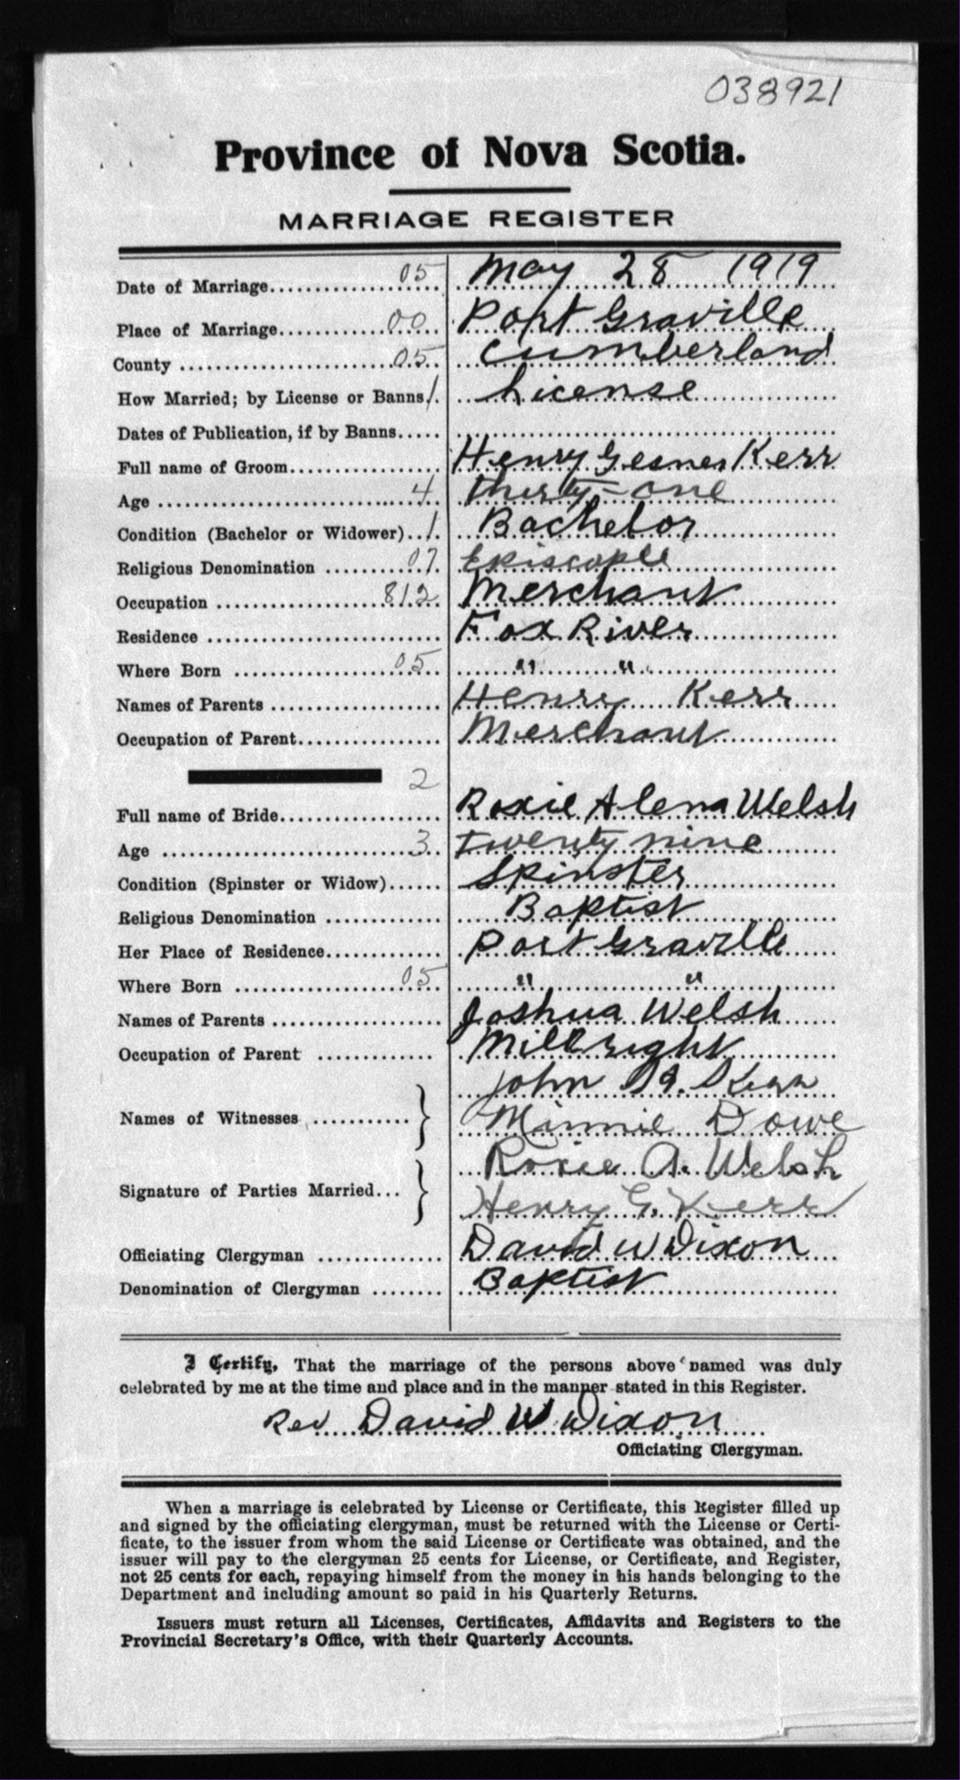 038921
Province of Nova Scotia.
MARRIAGE REGISTER
Date of Marriage 05 May 28 1919
Place of Marriage 00 Port Graville
County 05 Cumberland
How Married; by License or Banns 1 License
Dates of Publication, if by Banns
Full name of Groom Henry Gesner Kerr
Age 4 thirty-one
Condition (Bachelor or Widower) 1 Bachelor
Religious Denomination 07 Episcople
Occupation 812 Merchant
Residence Fox River
Where Born 05 " "
Names of Parents Henry Kerr
Occupation of Parent Merchant
2
Full name of Bride Roxie Alena Welsh
Age 3 twenty nine
Condition (Spinster or Widow) Spinster
Religious Denomination Baptist
Her Place of Residence Port Graville
Where Born 05 " "
Names of Parents Joshua Welsh
Occupation of Parent Millright
John
Names of Witnesses Minnie Dowe
Roxie A. Welsh
Signature of Parties Married... Henry G. Kerr
Officiating Clergyman David W Dixon
Denomination of Clergyman Baptist
I Certify, That the marriage of the persons above named was duly
celebrated by me at the time and place and in the manner stated in this Register.
Rev David W Dixon
Officiating Clergyman.
When a marriage is celebrated by License or Certificate, this Register filled up
and signed by the officiating clergyman, must be returned with the License or Certi-
ficate, to the issuer from whom the said License or Certificate was obtained, and the
issuer will pay to the clergyman 25 cents for License, or Certificate, and Register,
not 25 cents for each, repaying himself from the money in his hands belonging to the
Department and including amount so paid in his Quarterly Returns.
Issuers must return all Licenses, Certificates, Affidavits and Registers to the
Provincial Secretary's Office, with their Quarterly Accounts.